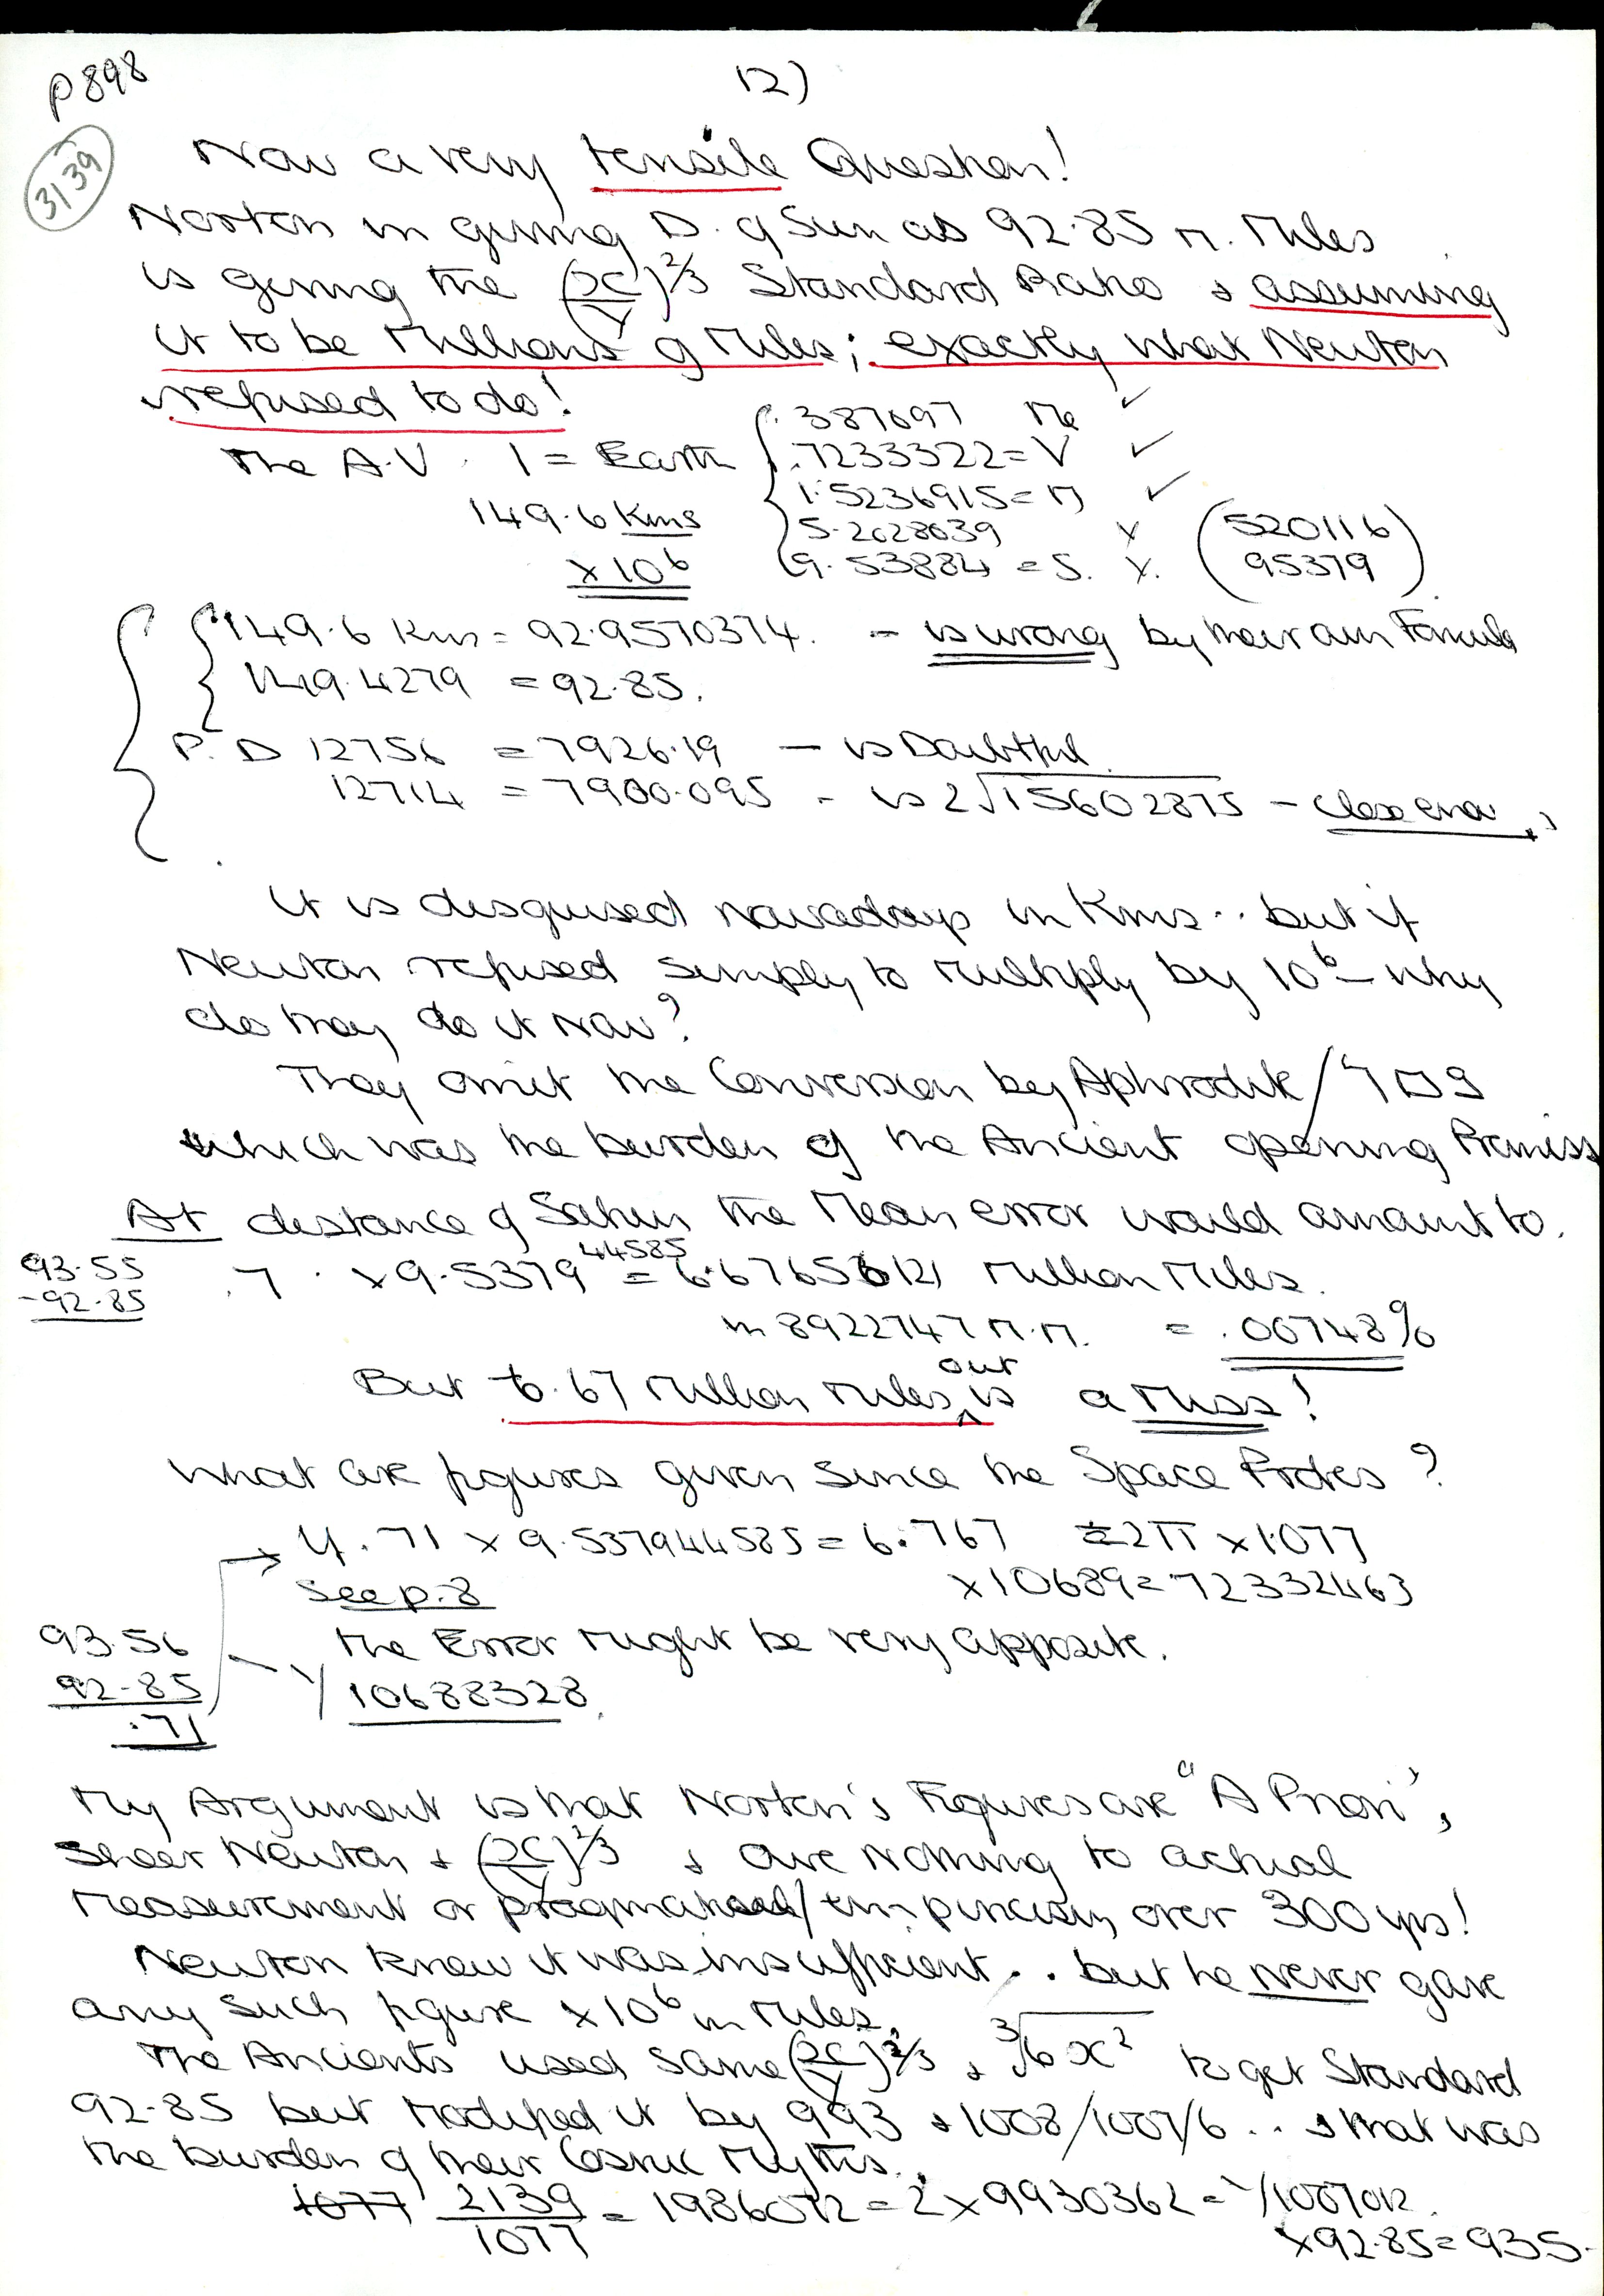 P898
12)
3139
Now a very tensile Question!
Norton in giving D. of Sun as 92.85 m. Miles
is giving the (x/y)^2/3 Standard Ratio & assuming
it to be Millions of Miles; exactly what Newton
refused to do!
The A.U. 1 = Earth { .387097 Me ✓
.7233322 = V ✓
1.5236915 = M ✓
149.6 Kms
5.2028039 x (520116
x 10^6
9.53884 = S. x. 95379)
149.6 Kms = 92.9570374. - is wrong by their own Formula
149.4279 = 92.85.
P. D 12756 = 7926.19 - is Doubtful
12714 = 7900.095 - is 2√15602875 - close
It is disguised nowadays in Kms.. but if
Newton refused simply to multiply by 10^6 - why
do they do it now?
They omit the Conversion by Aphrodite/
which was the burden of the Ancient opening Premiss
At distance of Saturn the Mean error would amount to.
93.55
- 92.85
.7 x 9.537944585 = 6.6765612 Million Miles.
in 8922747 M.M. = .00748%
But 6.67 Million Miles out is a Miss!
What are figures given since the Space Probes?
4. 71 x 9.537944585 = 6.767 = 2π x 1.077
See p. 8
x 10689 = 72332463
The Error might be very apposite.
93.56
92.85
.71
1/10688328
My Argument is that Norton's Figures are "A Priori",
sheer Newton & (x/y)^2/3 & owe Nothing to actual
Measurement or empiricism over 300 yrs!
Newton knew it was insufficient.. but he never gave
any such figure x10^6 in Miles.
The Ancients used same (x/y)^2/3 & ∛6x² to get Standard
92.85 but Modified it by 993 & 1008/1007/6.. & that was
the burden of their Cosmic Myths.
1077 2139/1077 = 1986072 = 2 x 9930362 = 1/1007012.
x 92.85 = 935.